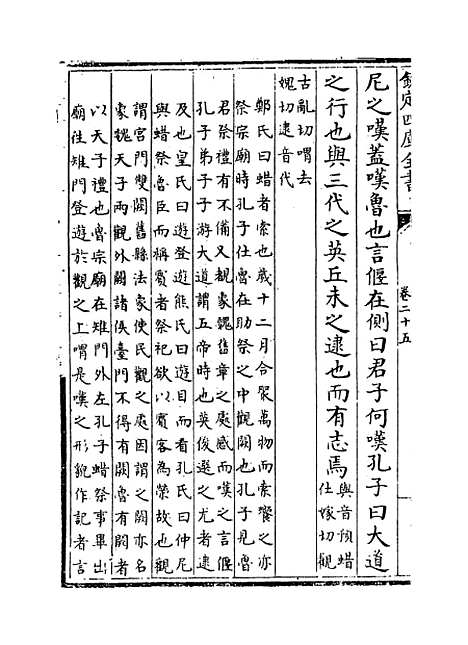 欽定四庫全書
卷二十五
尼之嘆蓋嘆魯也言偃在側曰君子何嘆孔子曰大道
之行也與三代之英丘未之逮也而有志焉與音預蜡仕嫁切觀
古亂切喟去愧切逮音代
鄭氏曰蜡者索也歲十二月合聚萬物而索饗之亦
祭宗廟時孔子仕魯在助祭之中觀闕也孔子見魯
君祭禮有不備又覩象魏舊章之處感而嘆之言偃
孔子弟子子游大道謂五帝時也英俊選之尤者逮
及也皇氏曰遊登遊熊氏曰遊目而看孔氏曰仲尼
與蜡祭魯臣而稱賓者祭祀欲以賓客為榮故也觀
謂宫門雙闕舊縣法象使民觀之處因謂之闕亦名
象魏天子兩觀外闕諸侯臺門不得有闕魯有闕者
以天子禮也魯宗廟在雉門外左孔子蜡祭事畢出
廟徃雉門登遊於觀之上喟是嘆之形貌作記者言